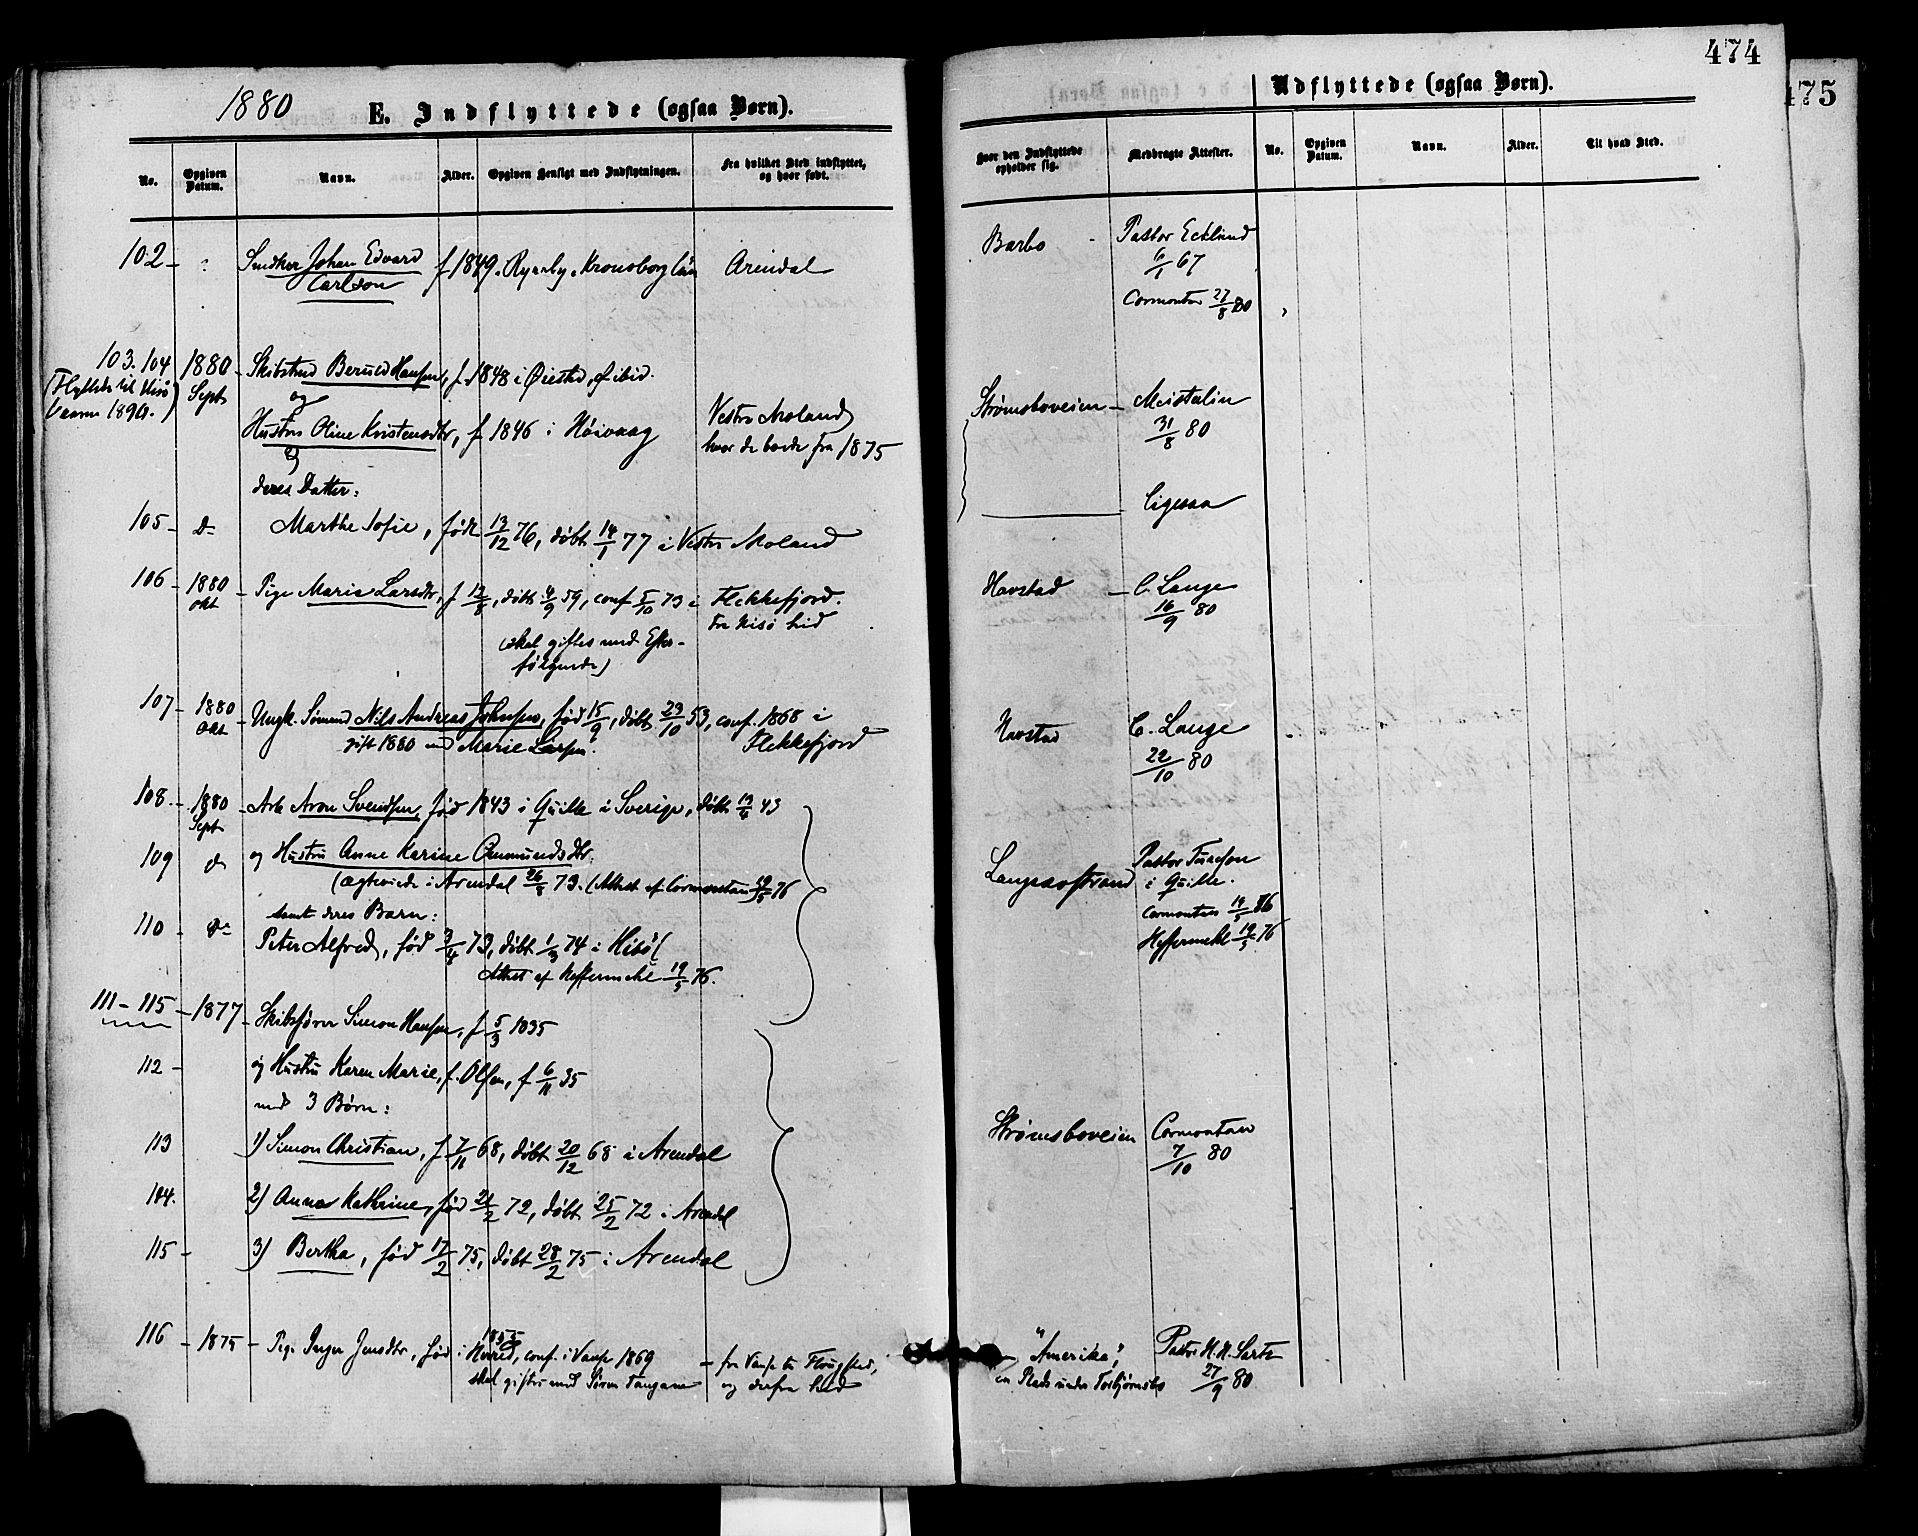 474
475
1880 E. Indflyttede (ogsaa Børn).
Udflyttede (ogsaa Børn).
No. Opgiven Datum. Navn. Alder. Opgiven Hensigt med Indflytningen. Fra hvilket Sted indflyttet, og hvor født.
Hvor den Indflyttede opholder sig. Medbragte Attester. No. Opgiven Datum. Navn. Alder. Til hvad Sted.
102 - Snedker Johan Edvard f 1849. Kronoborg län Arendal Barbo - Pastor Ecklund
Carlson 6/1 67
Cormontan 27/8 80
103. 104 1880 - Hansen, f. 1848 i Øiestad, ibid.
(Flyttede til Hisø Sept Strømsboveien - Meistulin
1894.) og 31/8 80
Hustru Oline Kristensdtr, f 1846 i Høivaag Vestre Moland
hvor de boede fra 1875
deres Datter: Ligesaa
105 - Do Marthe Sofie, født 13/12 76, døbt 14/1 77 i Vestre Moland
106 - 1880 - Pige Marie Larsdtr, f 12/8, døbt 4/9 59, conf 5/10 73 i Flekkefjord. Havstad - C. Lange
okt fra Hisø hid 16/9 80
(skal giftes med Efter-
følgende)
107 - 1880 - Ungk. Sømand Nils Andreas Johnsen, født 15/9, døbt 23/10 53, conf. 1868 i Havstad C. Lange
Okt gift 1880 med Marie Larsen. Flekkefjord 22/10 80
108 - 1880 - Arb Aron Svendsen, født 1843 i Quille i Sverige, døbt 13/6 43
Sept
109 do og Hustru Anne Karine Ommundsdtr. Langsævstrand Pastor
(ægteviede i Arendal 26/8 73. (Attest af Cormontan 19/5 76 i Quille.
samt deres Barn: Cormontan 19/5 76
110 - Do Peter Alfred, født 3/4 73, døbt 1/3 74 i Hisø ( Heffermehl 19/5 76
Attest af Heffermehl 19/5 76.
111 - 115 - 1877 - Skibsfører Simon Hansen, f 5/3 1835
112 - og Hustru Karen Marie, f. Olsen, f 6/11 35
med 3 Børn:
113 1) Simon Christian, f 7/11 68, døbt 20/12 68 i Arendal Strømsboveien Cormontan
7/10 80
114. 2) Anna Kathrine, født 21/2 72, døbt 25/2 72 i Arendal
115 - 3) Bertha, født 17/2 75, døbt 28/2 75 i Arendal
116 - 1875 - Pige Inger Jensdtr, født i 1855 Herred, conf. i Vanse 1869 - fra Vanse til "Amerika", Pastor H. H. Sartz
skal giftes med Søren Tangane og derfra hid en Plads under Torbjørnsbo 27/9 80